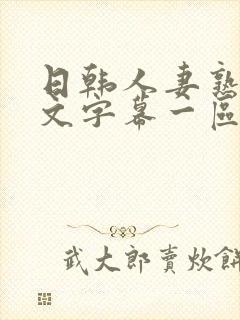 日韩人妻熟
文字幕一區
武大郎賣炊餅